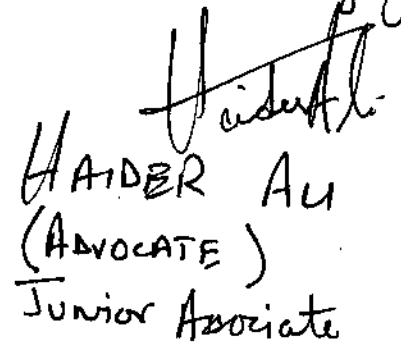 Haider Ali
HAIDER ALI
(ADVOCATE)
Junior Associate